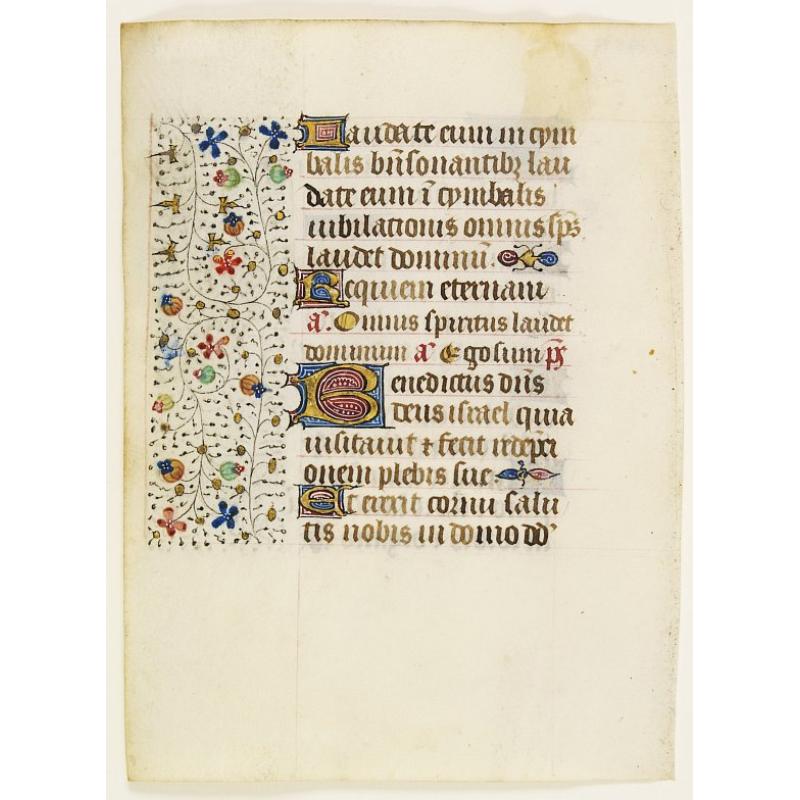 Laudate eum in cym
balis bñsonantibꝫ lau
date eum ĩ cymbalis
iubilationis omnis sp̃s
laudet dominũ.
Requiem eternam
a͂. Omnis spiritus laudet
dominum a͂ Ego sum p̃s
Benedictus dñs
deus israel quia
uisitauit ⁊ fecit redẽpti
onem plebis sue.
Et erexit cornu salu
tis nobis in domo dd̾